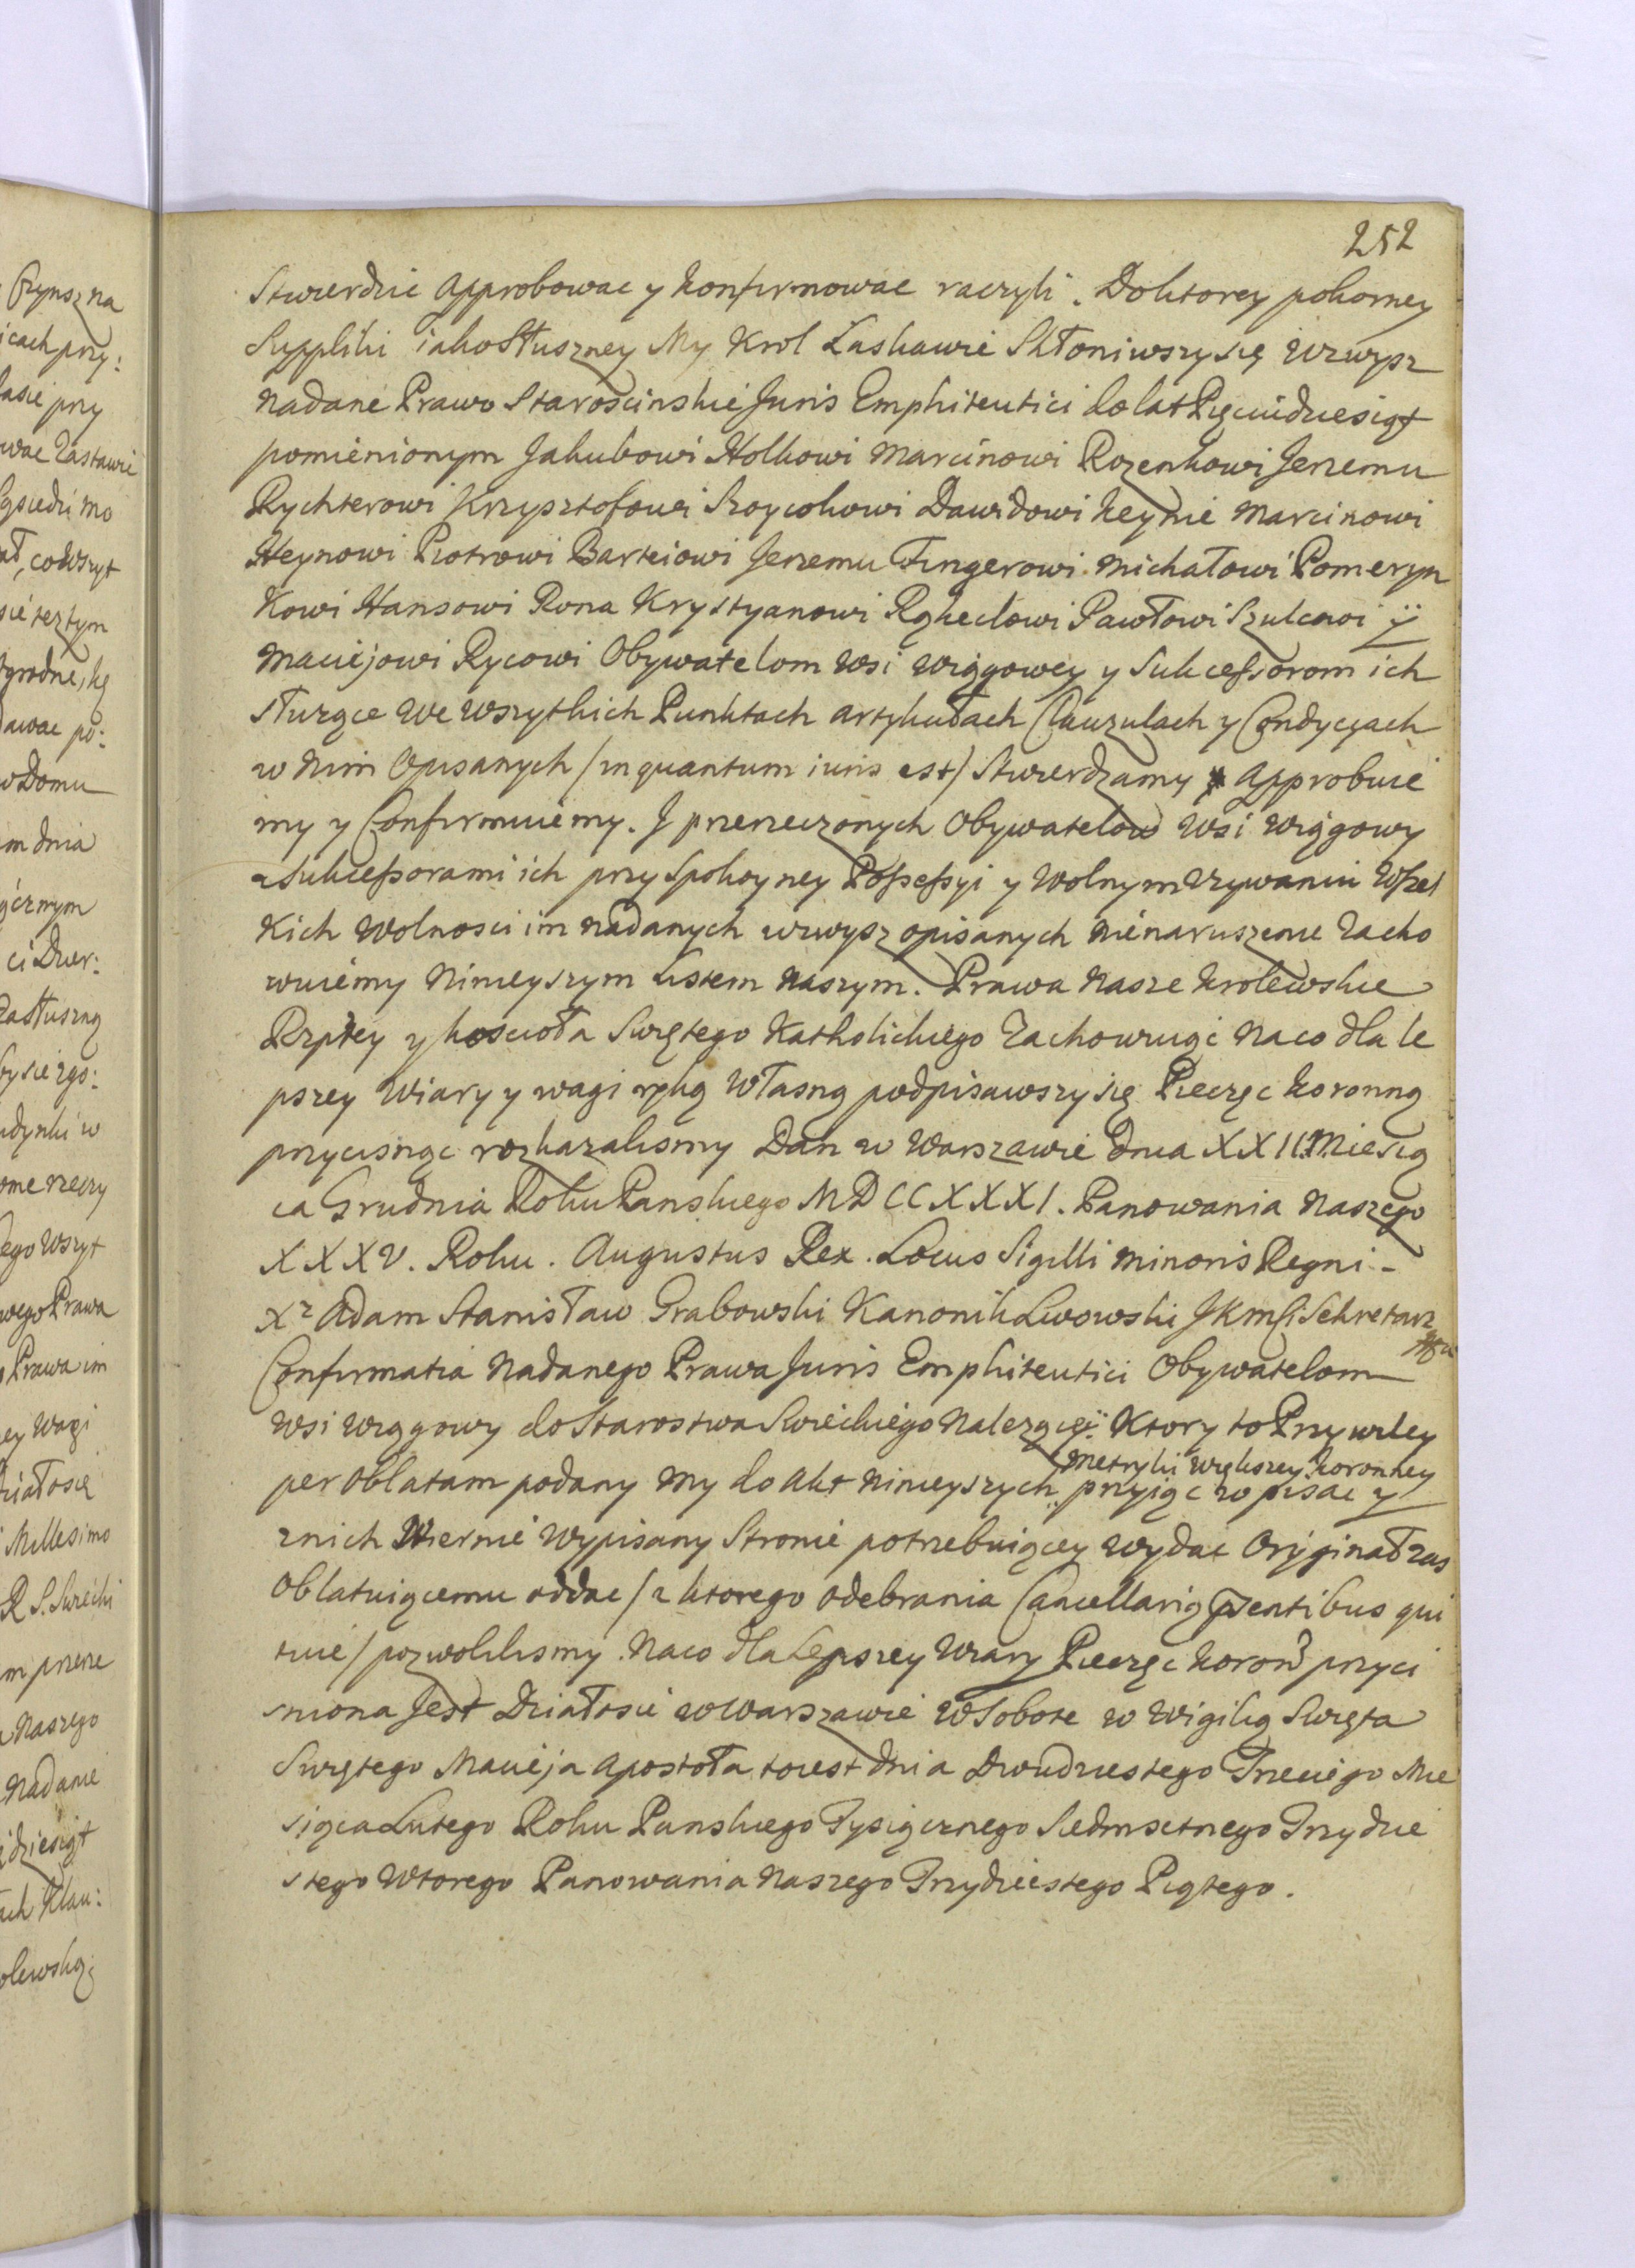 252
Stwierdzic approbowac y konfirmowac raczyli. Do ktorey pokorney
Suppliki iako Słuszney My Krol Łaskawie Skłoniwszy się wzwysz
nadane Prawo Starościnskie Juris Emphiteutici do lat Pięciudziesiąt
pomienionym Jakubowi Holkowi Marcinowi Rozenkowi Jerzemu
Rychterowi Krzysztofowi Szoycohowi Dawidowi Keynie Marcinowi
Heynowi Piotrowi Barteiowi Jerzemu Fingerowi Michałowi Pomeryn
kowi Hansowi Rona Krystyanowi Rękeclowi Pawłowi Szulcowi ÿ
Maciejowi Rycowi Obywatelom Wsi Wiągowey y Sukcessorom ich
służące we wszytkich Punktach artykułach Clauzulach y Condycyach
w nim Opisanych /in quantum iuris est/ Stwierdzamy approbuie
my y Confirmuiemy. J przerzeczonych Obywatelow Wsi Wiągowy
z Sukcessorami ich przy Spokoyney Possessyi y Wolnym Vzywaniu Wszel
kich Wolnosci im nadanych wzwysz opisanych nienaruszenie Zacho
wuiemy Ninieyszym Listem Naszym. Prawa Nasze Krolewskie
Rzptey y Koscioła Swiętego Katholickiego Zachowuiąc Na co dla le
pszey Wiary y wagi ręką Własną podpisawszy się Pieczęc koronną
przycisnąc rozkazalismy Dan w Warszawie Dnia XXII Miesią
ca Grudnia Roku Panskiego MDCCXXXI. Panowania Naszego
XXXV. Roku. Augustus Rex. Locus Sigilli Minoris Regni -
Xz Adam Stanisław Grabowski Kanonik Lwowski JKmści Sekretarz
Confirmatia Nadanego Prawa Juris Emphiteutici Obywatelom
Wsi Wiągowy do Starostwa Swieckiego Nalezącÿ. Ktory to Przywiley
Metryki większey koronney
per Oblatam podany my do Akt Ninieyszych przyiąc w pisac y
znich Wiernie Wypisany Stronie potrzebuiącey wydac Oryginał zas
Oblatuiącemu oddac /z ktorego odebrania Cancellarią pzentibus qui
tuie/ pozwolilismy. Na co dla Lepszey Wiary Pieczęc koron przyci
sniona Jest Działo sie w Warszawie W Sobote w Wigilią Swięta
Swiętego Macieja Apostoła to iest dnia Dwudziestego Trzeciego Mie
siąca Lutego Roku Panskiego Tysiącznego Siedmsetnego Trzydzie
stego Wtorego Panowania Naszego Trzydziestego Piątego.